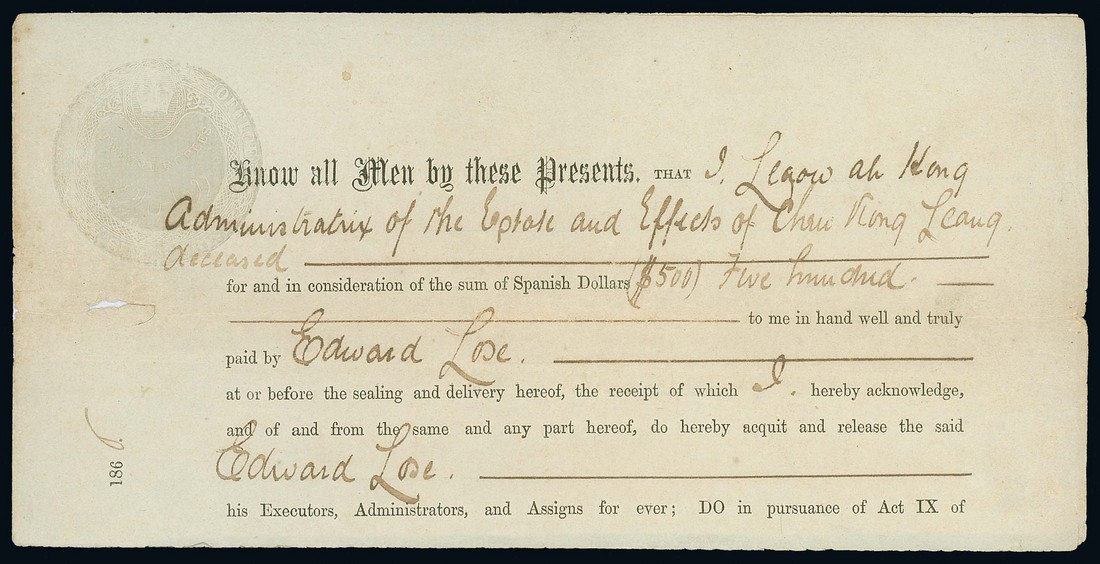 Know all Men by these Presents. THAT I, Legow ah Kong
Administratrix of the Estate and Effects of Chew Kong Leang.
deceased
for and in consideration of the sum of Spanish Dollars ($500) Five hundred.
to me in hand well and truly
paid by Edward Lose.
at or before the sealing and delivery hereof, the receipt of which I. hereby acknowledge,
and of and from the same and any part hereof, do hereby acquit and release the said
Edward Lose.
his Executors, Administrators, and Assigns for ever; DO in pursuance of Act IX of
186